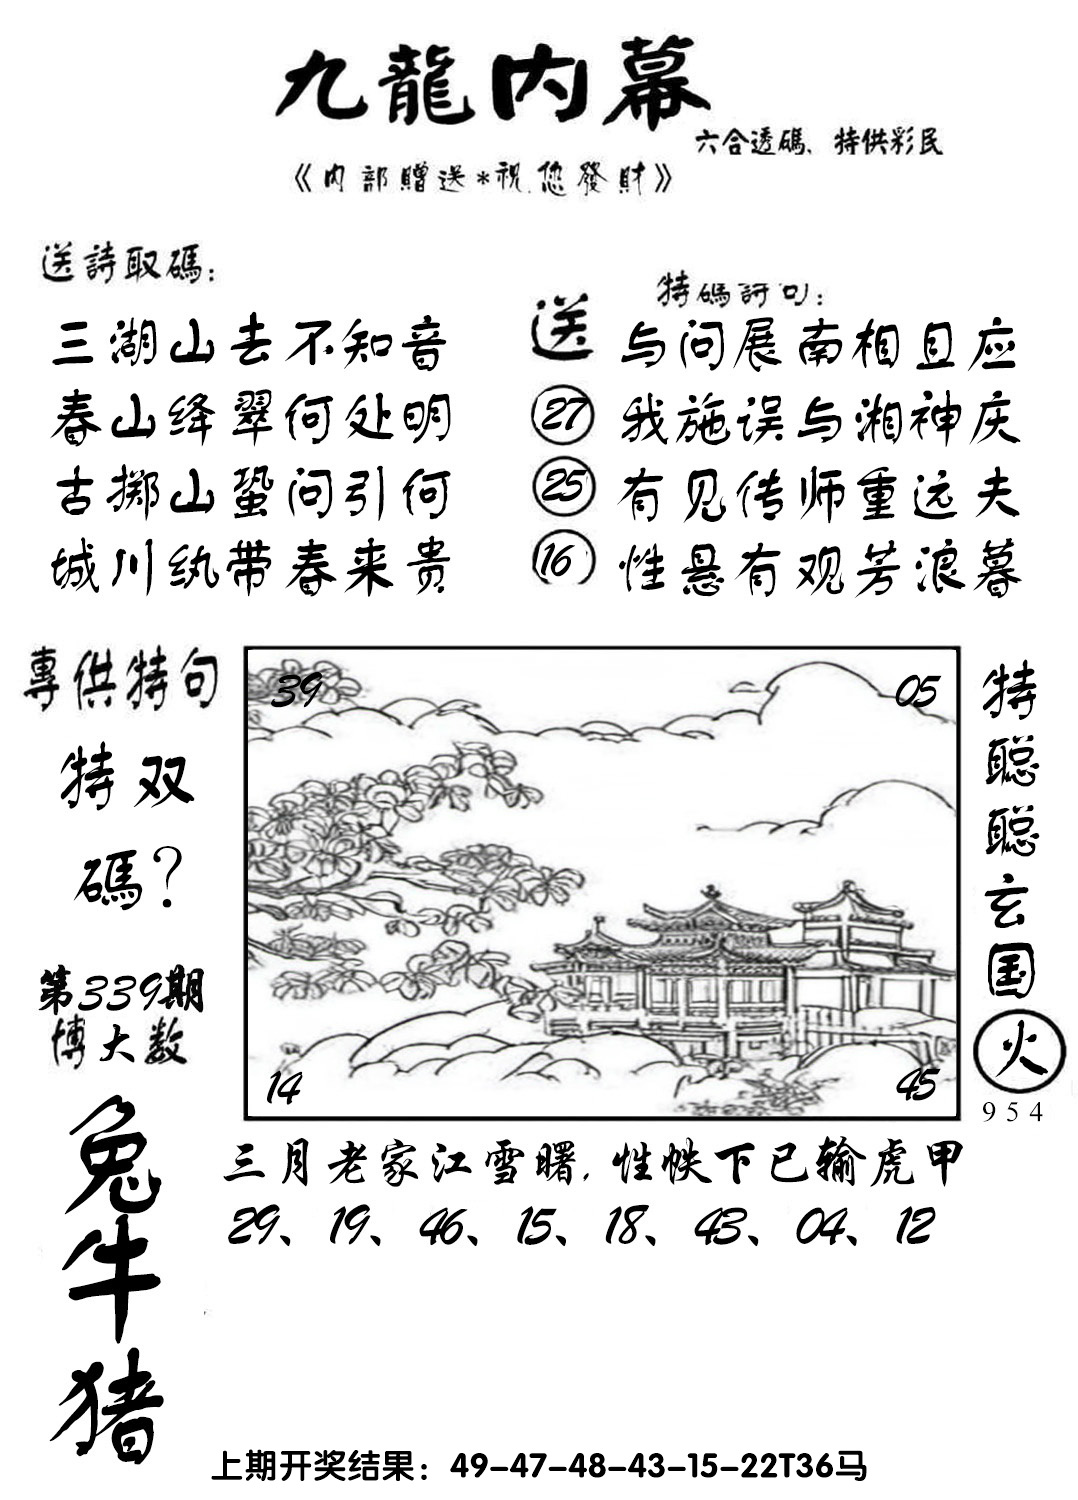 九龍内幕
六合透碼、特供彩民
《内部贈送*祝您發財》
送詩取碼：
三湖山去不知音
春山绛翠何处明
古掷山蛩问引何
城川纨带春来贵
特碼詩句：
送
27
25
16
与问展南相且应
我施误与湘神庆
有见传师重远夫
性悬有观芳浪暮
專供特句
特双
碼？
第339期
博大数
兔
牛
猪
39
05
14
45
特
聪
聪
玄
国
火
954
三月老家江雪曙，性帙下已输虎甲
29、19、46、15、18、43、04、12
上期开奖结果：49-47-48-43-15-22T36马